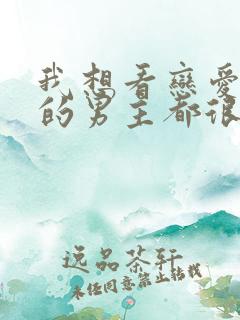 我想看戀愛
的男主都很
逸品茶轩
未经同意禁止转载